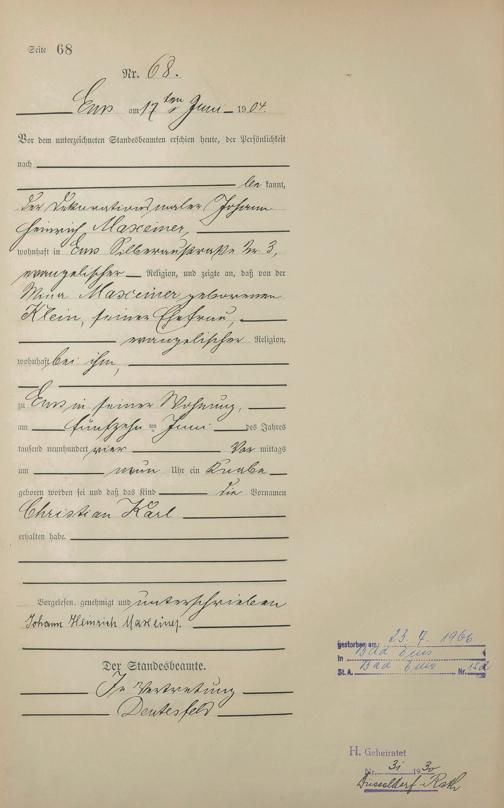 Seite 68
Nr. 68.
Ems am 17ten Juni 1904.
Vor dem unterzeichneten Standesbeamten erschien heute, der Persönlichkeit
nach
be kannt,
der Dekorationsmaler Johann
Heinrich Maxeiner,
wohnhaft in Ems Silberaustraße Nr 3,
evangelischer Religion, und zeigte an, daß von der
Mina Maxeiner geborenen
Klein, seiner Ehefrau,
evangelischer Religion,
wohnhaft bei ihm,
zu Ems in seiner Wohnung,
am fünfzehn ten Juni des Jahres
tausend neunhundert vier Vor mittags
um neun Uhr ein Knabe
geboren worden sei und daß das Kind die Vornamen
Christian Karl
erhalten habe.
Vorgelesen, genehmigt und unterschrieben
Johann Heinrich Maxeiner.
Der Standesbeamte.
In Vertretung
gestorben am: 23.7.1966
in Bad Ems
St.A. Bad Ems Nr.
H. Geheiratet
Nr. 31 1930
Düsseldorf-Rath